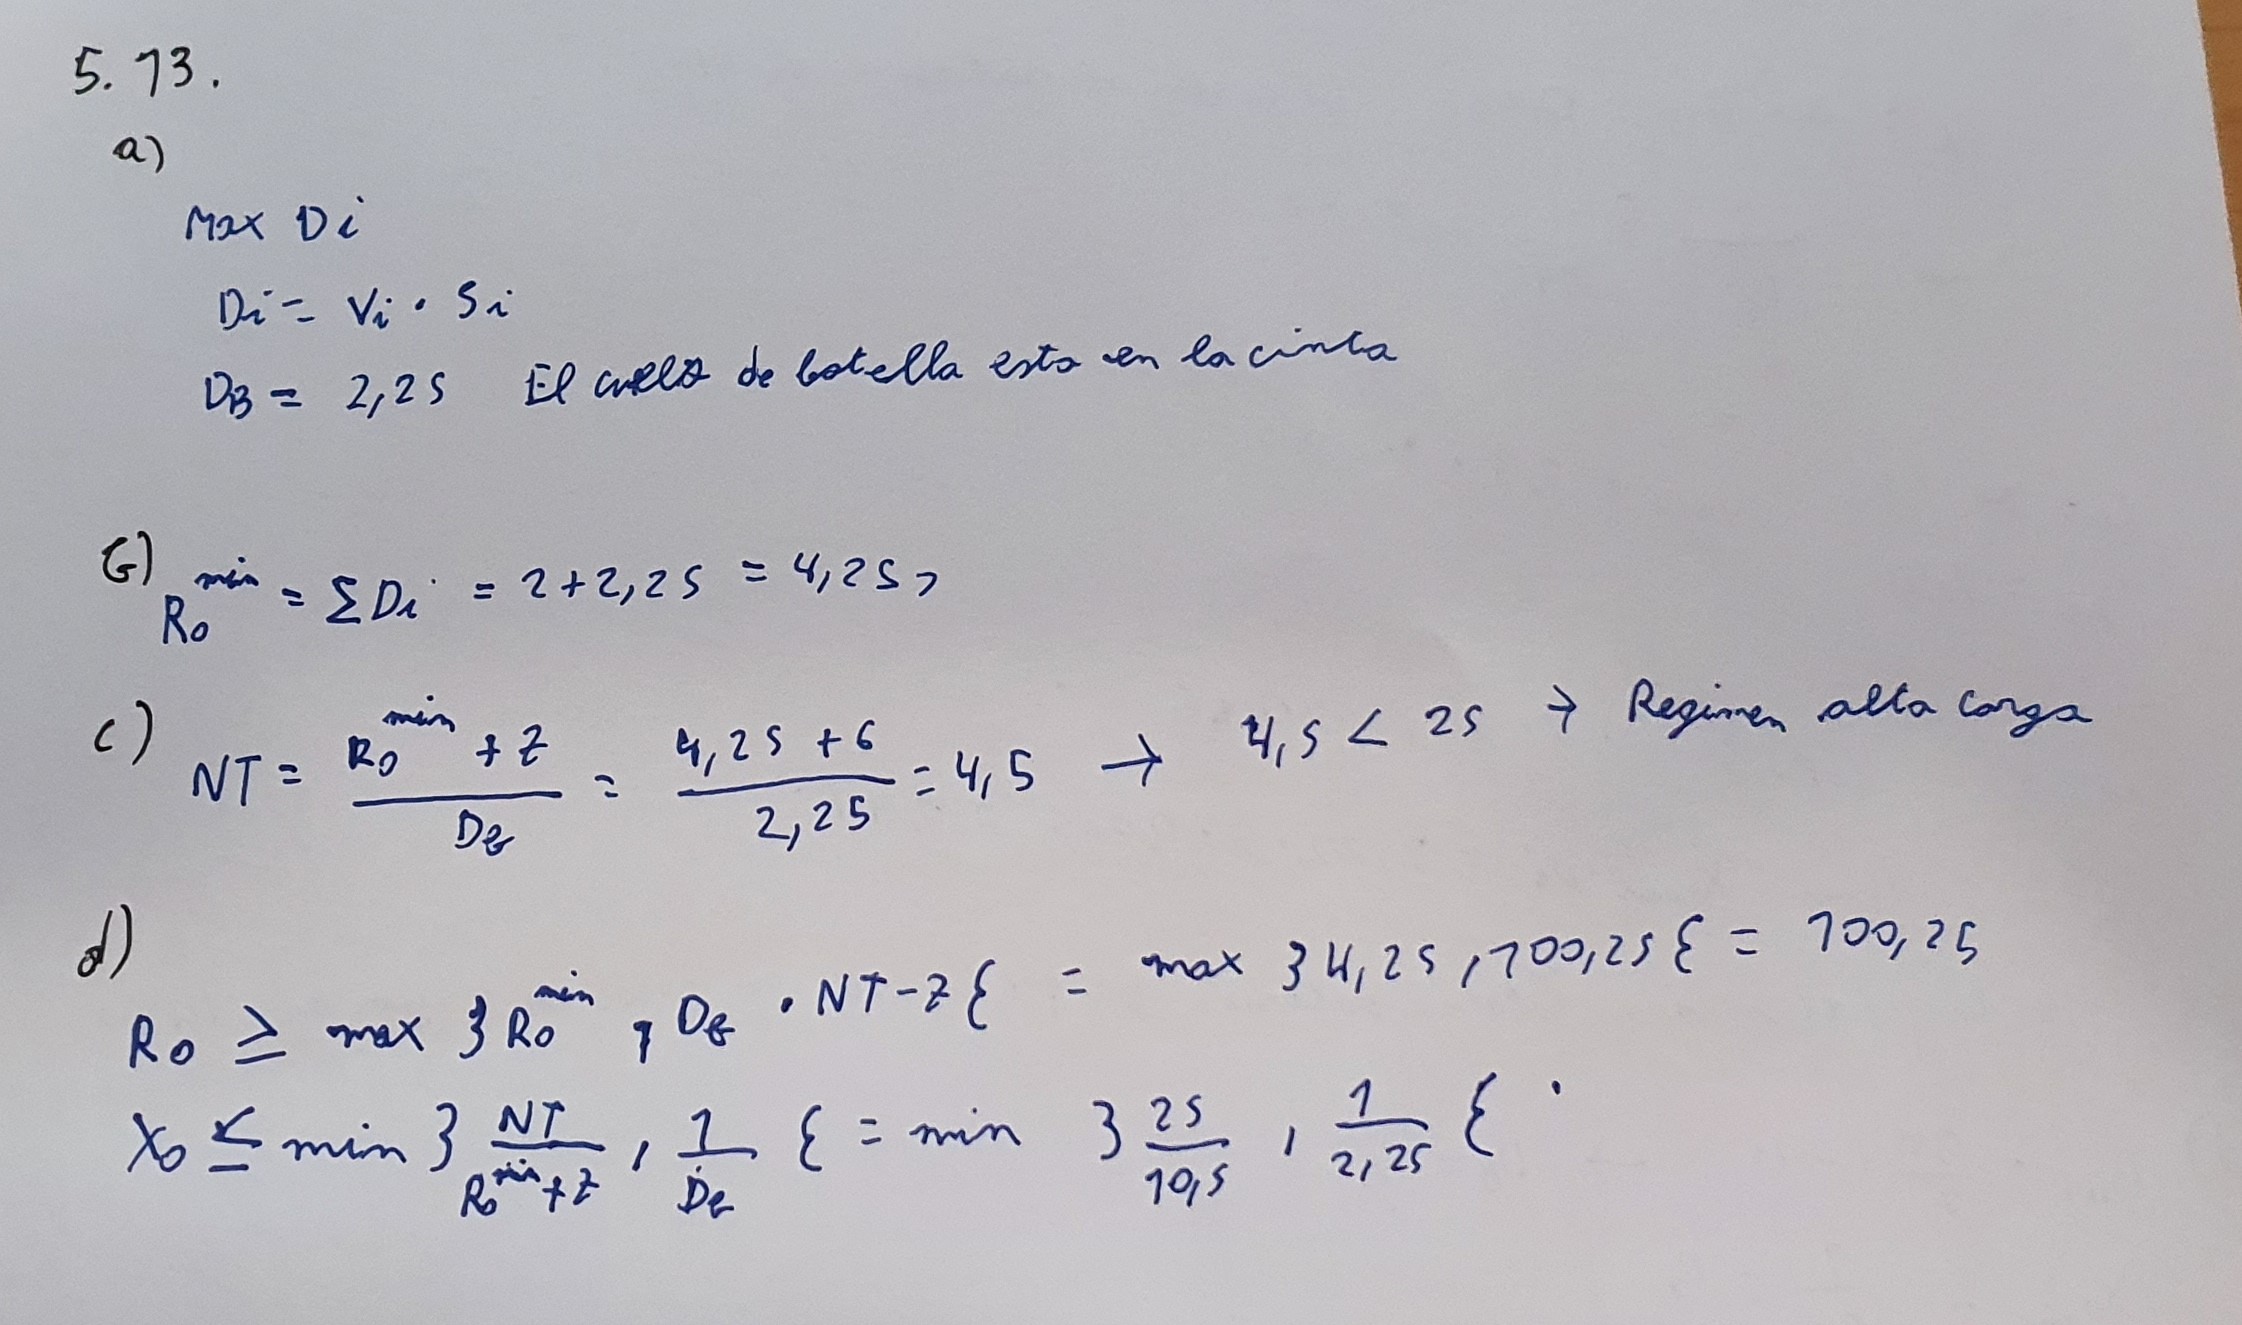 5.13.
a)
Max Di
Di = Vi · Si
DB = 2,25 El cuello de botella esta en la cinta
b) R₀^min = ΣDi = 2+2,25 = 4,25,
c) NT = (R₀^min + Z)/DB = (4,25 + 6)/2,25 = 4,5 → 4,5 < 25 → Regimen alta carga
d)
R₀ ≥ max }R₀^min, DB · NT-Z{ = max }4,25, 100,25{ = 100,25
X₀ ≤ min }NT/(R₀^min+Z), 1/DB{ = min }25/10,5, 1/2,25{